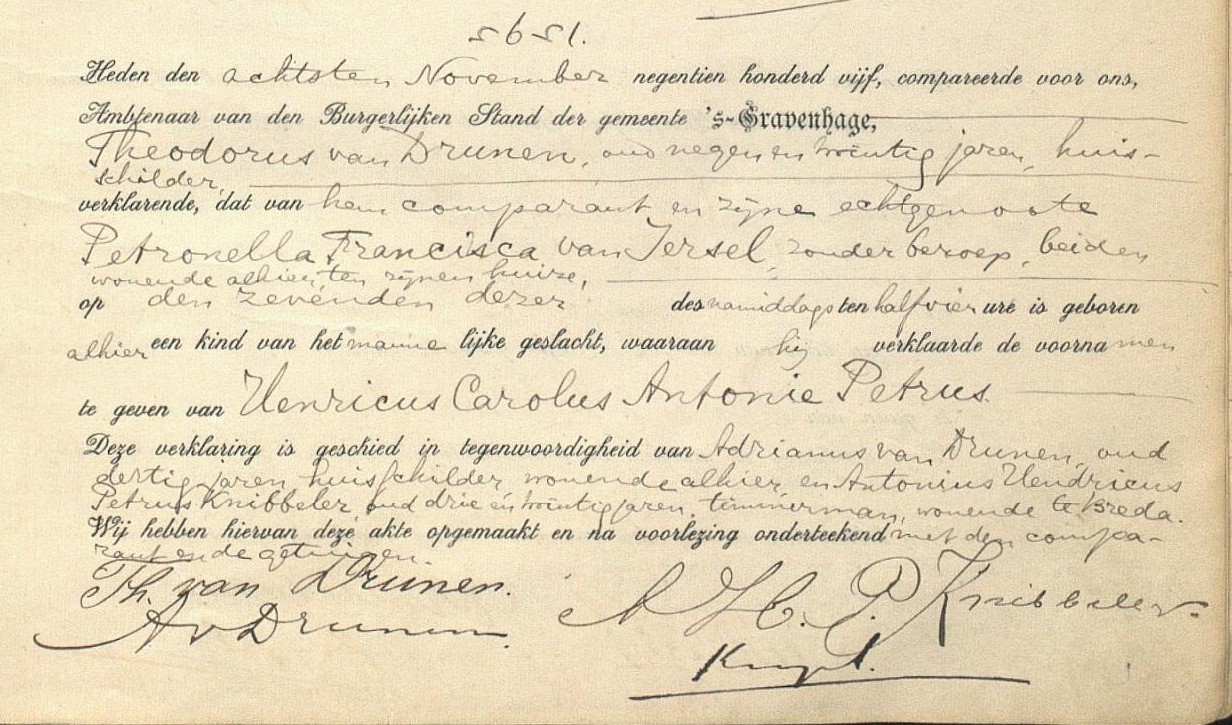 5651.
Heden den achtsten November negentien honderd vijf, compareerde voor ons,
Ambtenaar van den Burgerlijken Stand der gemeente 's-Gravenhage,
Theodorus van Drunen, oud negen en twintig jaren, huis-
schilder,
verklarende, dat van hem comparant en zijne echtgenoote
Petronella Francisca van Iersel, zonder beroep, beiden
wonende alhier, ten zijnen huize,
op den zevenden dezer des namiddags ten half vier ure is geboren
alhier een kind van het mannelijke geslacht, waaraan hij verklaarde de voornamen
te geven van Henricus Carolus Antonie Petrus.
Deze verklaring is geschied in tegenwoordigheid van Adrianus van Drunen, oud
dertig jaren, huisschilder, wonende alhier, en Antonius Hendricus
Petrus Knibbeler, oud drie en twintig jaren, timmerman, wonende te Breda.
Wij hebben hiervan deze akte opgemaakt en na voorlezing onderteekend met den compa-
rant en de getuigen.
Th. van Drunen.
A v Drunen
A H. P. Knibbeler.